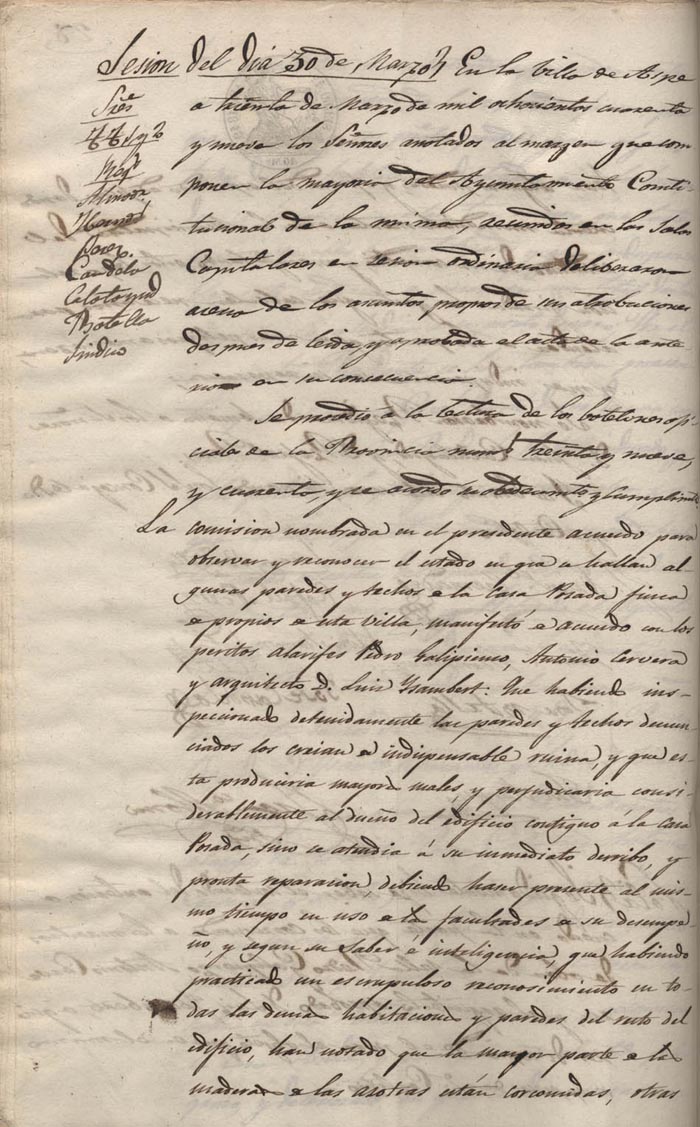 Sesion del dia 30 de Marzo
En la Villa de Aspe
a treinta de Marzo de mil ochocientos cuarenta
y nueve los Señores anotados al margen que com
ponen la mayoria del Ayuntamiento Consti
tucional de la misma, reunidos en las Salas
Capitulares en sesion ordinaria deliberaron
acerca de los asuntos propios de sus atribuciones
despues de leida y aprobada el acta de la ante
rior en su consecuencia.
Sres
Reg.
Almodr
Hernd
Perez
Candela
Calatayud
Botella
Sindico
Se procedio a la lectura de los boletines ofi
ciales de la Provincia num.s treinta y nueve,
y cuarenta, y se acordo su obedecimto y cumplimto
La comision nombrada en el presidente acuerdo para
observar y reconocer el estado en que se hallan al
gunas paredes y techos e la Casa Posada finca
e propios e esta Villa, manifestó e acuerdo con los
peritos alarifes Pedro Galipienso, Antonio Cervera
y arquitecto D. Luis Ysambert: Que habiendo ins-
peccionado detenidamente las paredes y techos denun
ciados los creian e indispensable ruina, y que es-
ta produciria mayores males, y perjudicaria consi-
derablemente al dueño del edificio contiguo á la Casa
Posada, sino se atendia á su inmediato derribo, y
pronta reparacion, debiendo hacer presente al mis-
mo tiempo en uso e las facultades e su desempe-
ño, y segun su saber é inteligencia, que habiendo
practicado un escrupuloso reconosimiento en to-
das las demas habitaciones y paredes del resto del
edificio, han notado que la mayor parte e las
maderas e las azoteas están corcomidas, otras